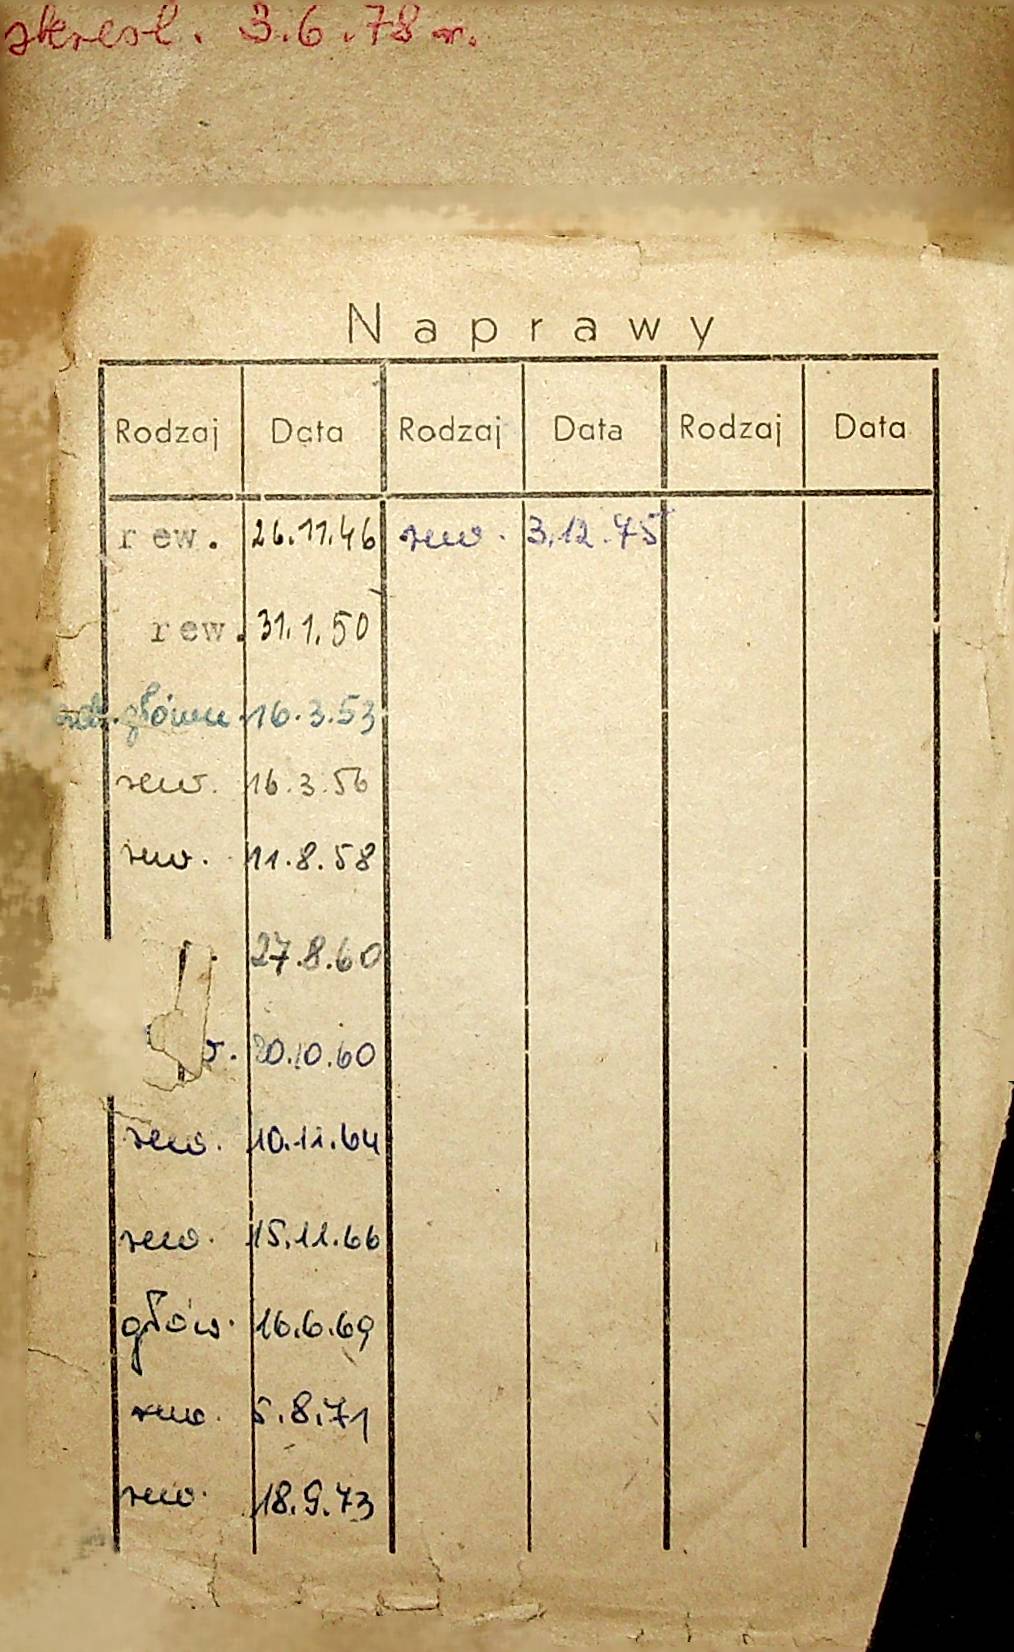 skreśl. 3.6.78 r.
Naprawy
Rodzaj Data Rodzaj Data Rodzaj Data
rew. 26.11.46 rew. 3.12.75
rew. 31.1.50
główn. 16.3.53
rew. 16.3.56
rew. 11.8.58
27.8.60
20.10.60
rew. 10.11.64
rew. 15.11.66
głów. 16.6.69
rew. 5.8.71
rew. 18.9.73